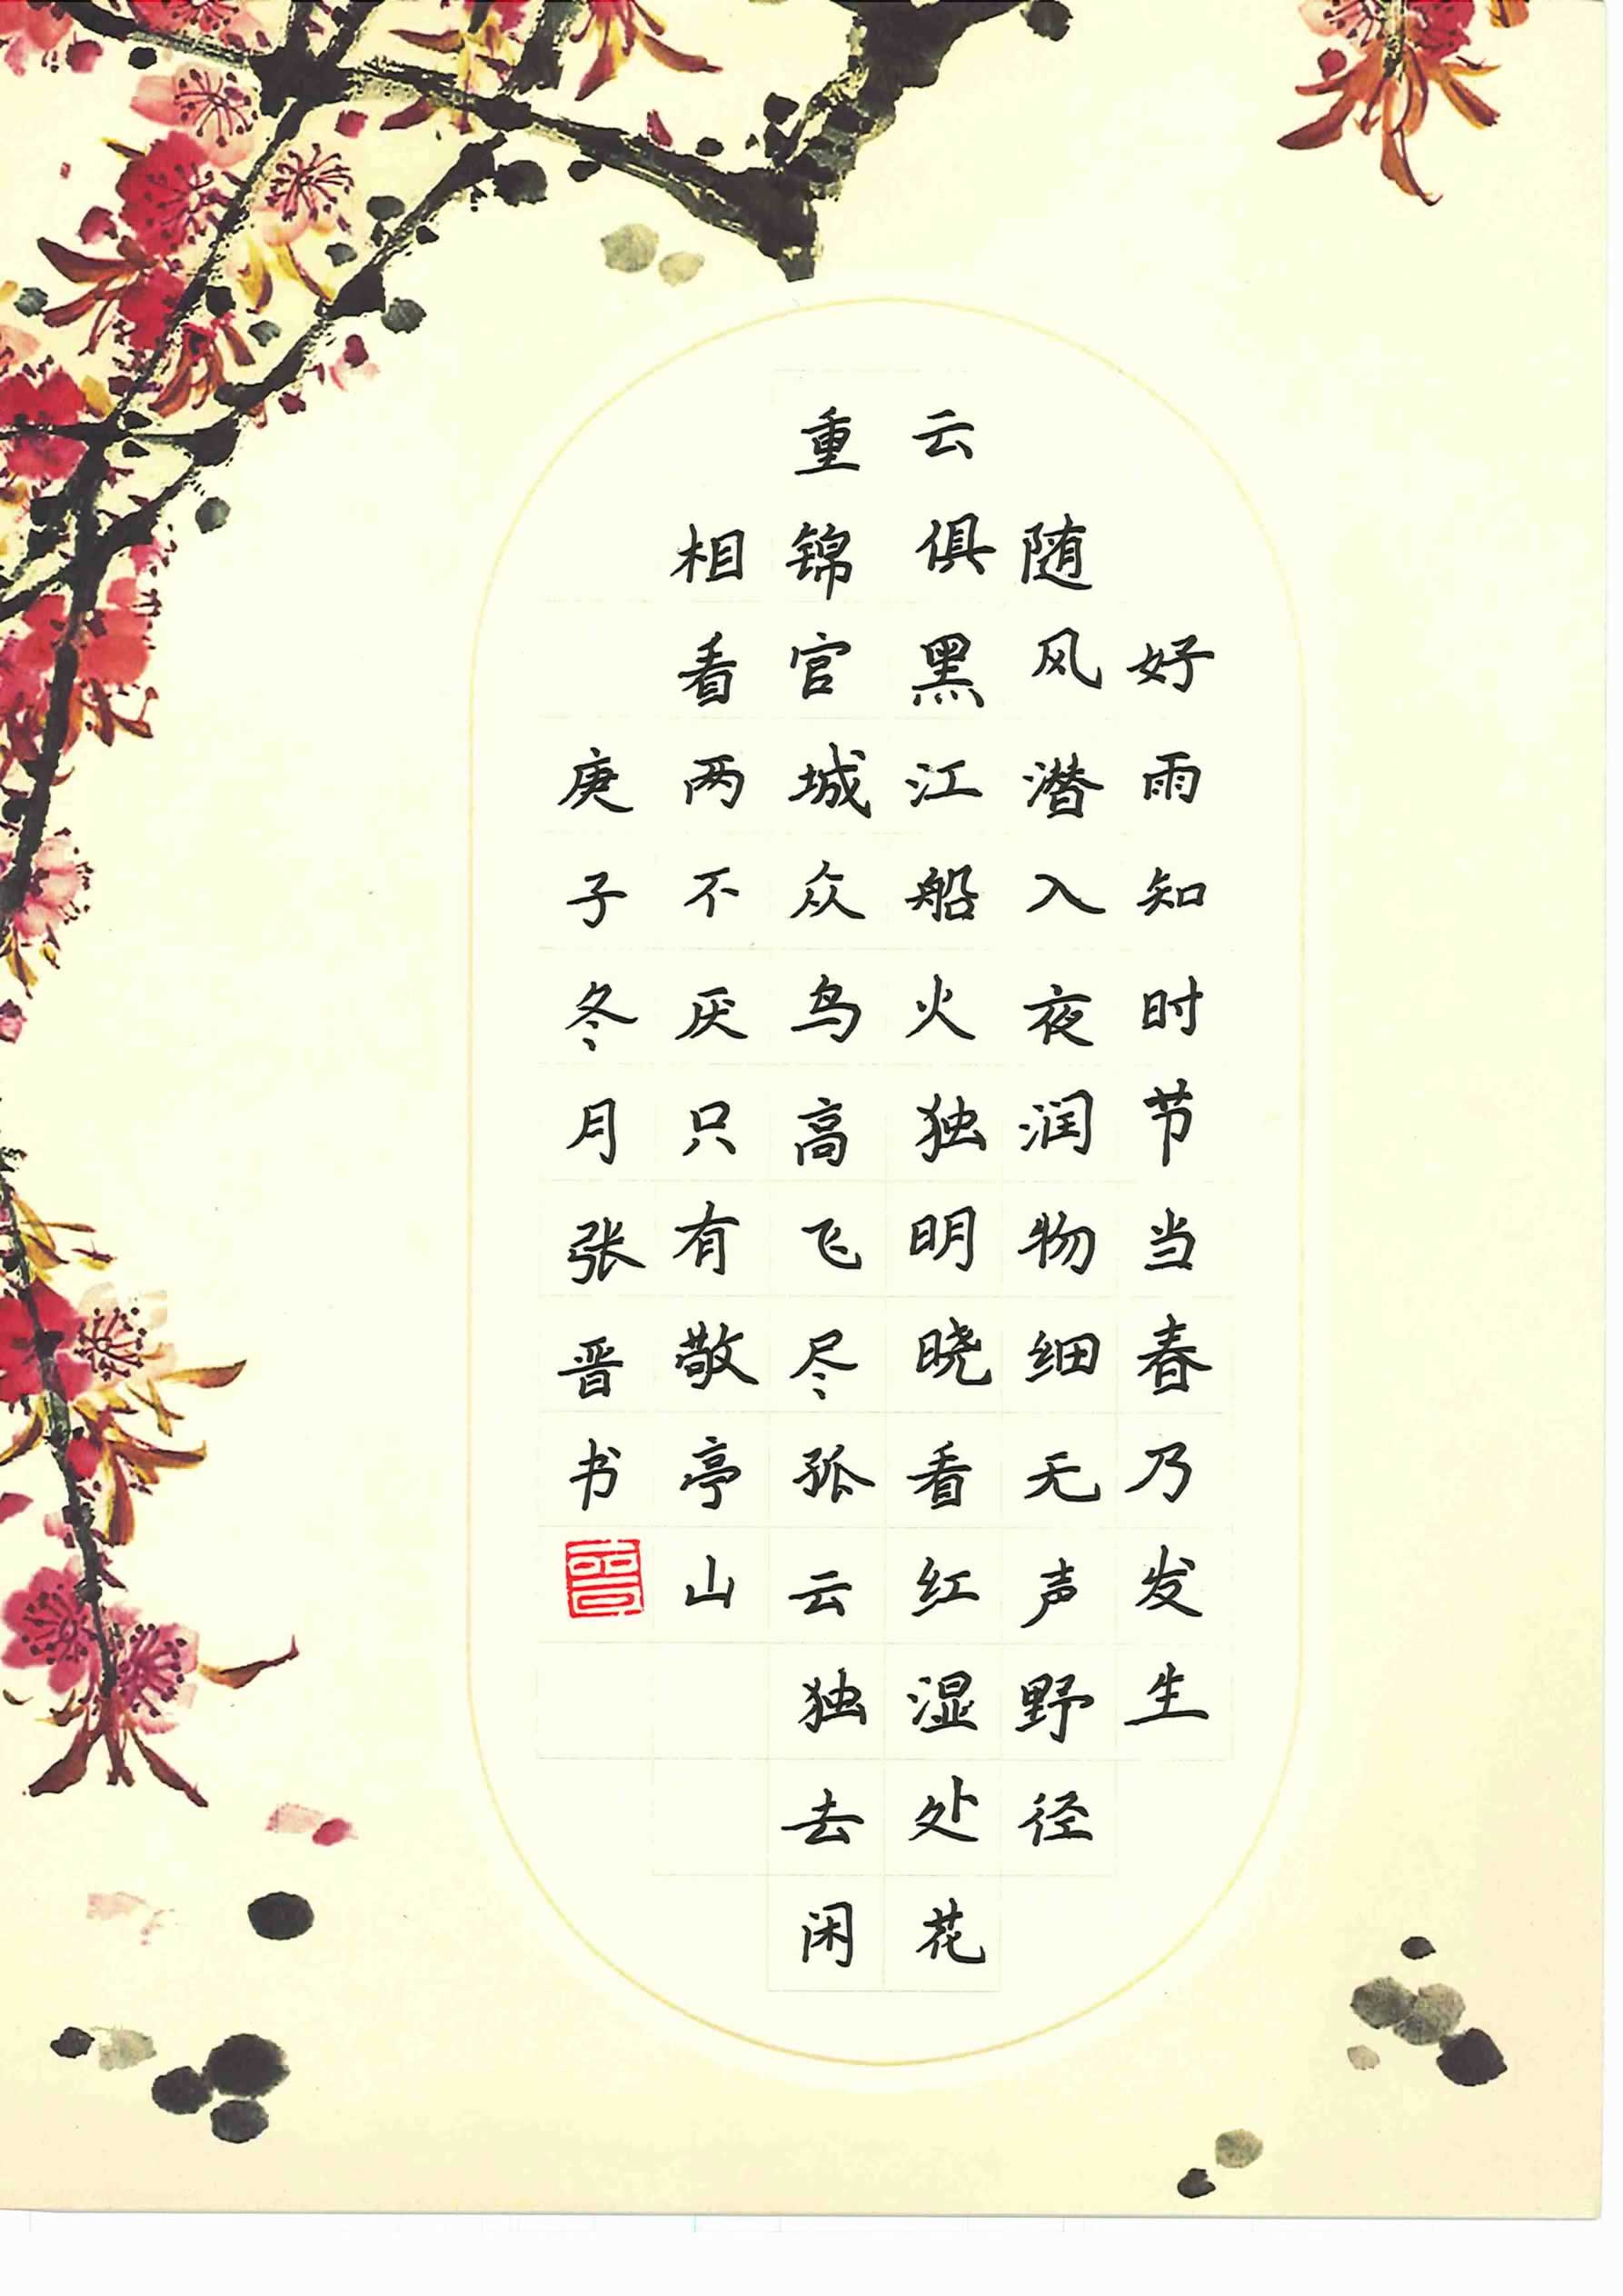 好雨知时节当春乃发生
随风潜入夜润物细无声野径
云俱黑江船火独明晓看红湿处花
重锦官城众鸟高飞尽孤云独去闲
相看两不厌只有敬亭山
庚子冬月张晋书
晋